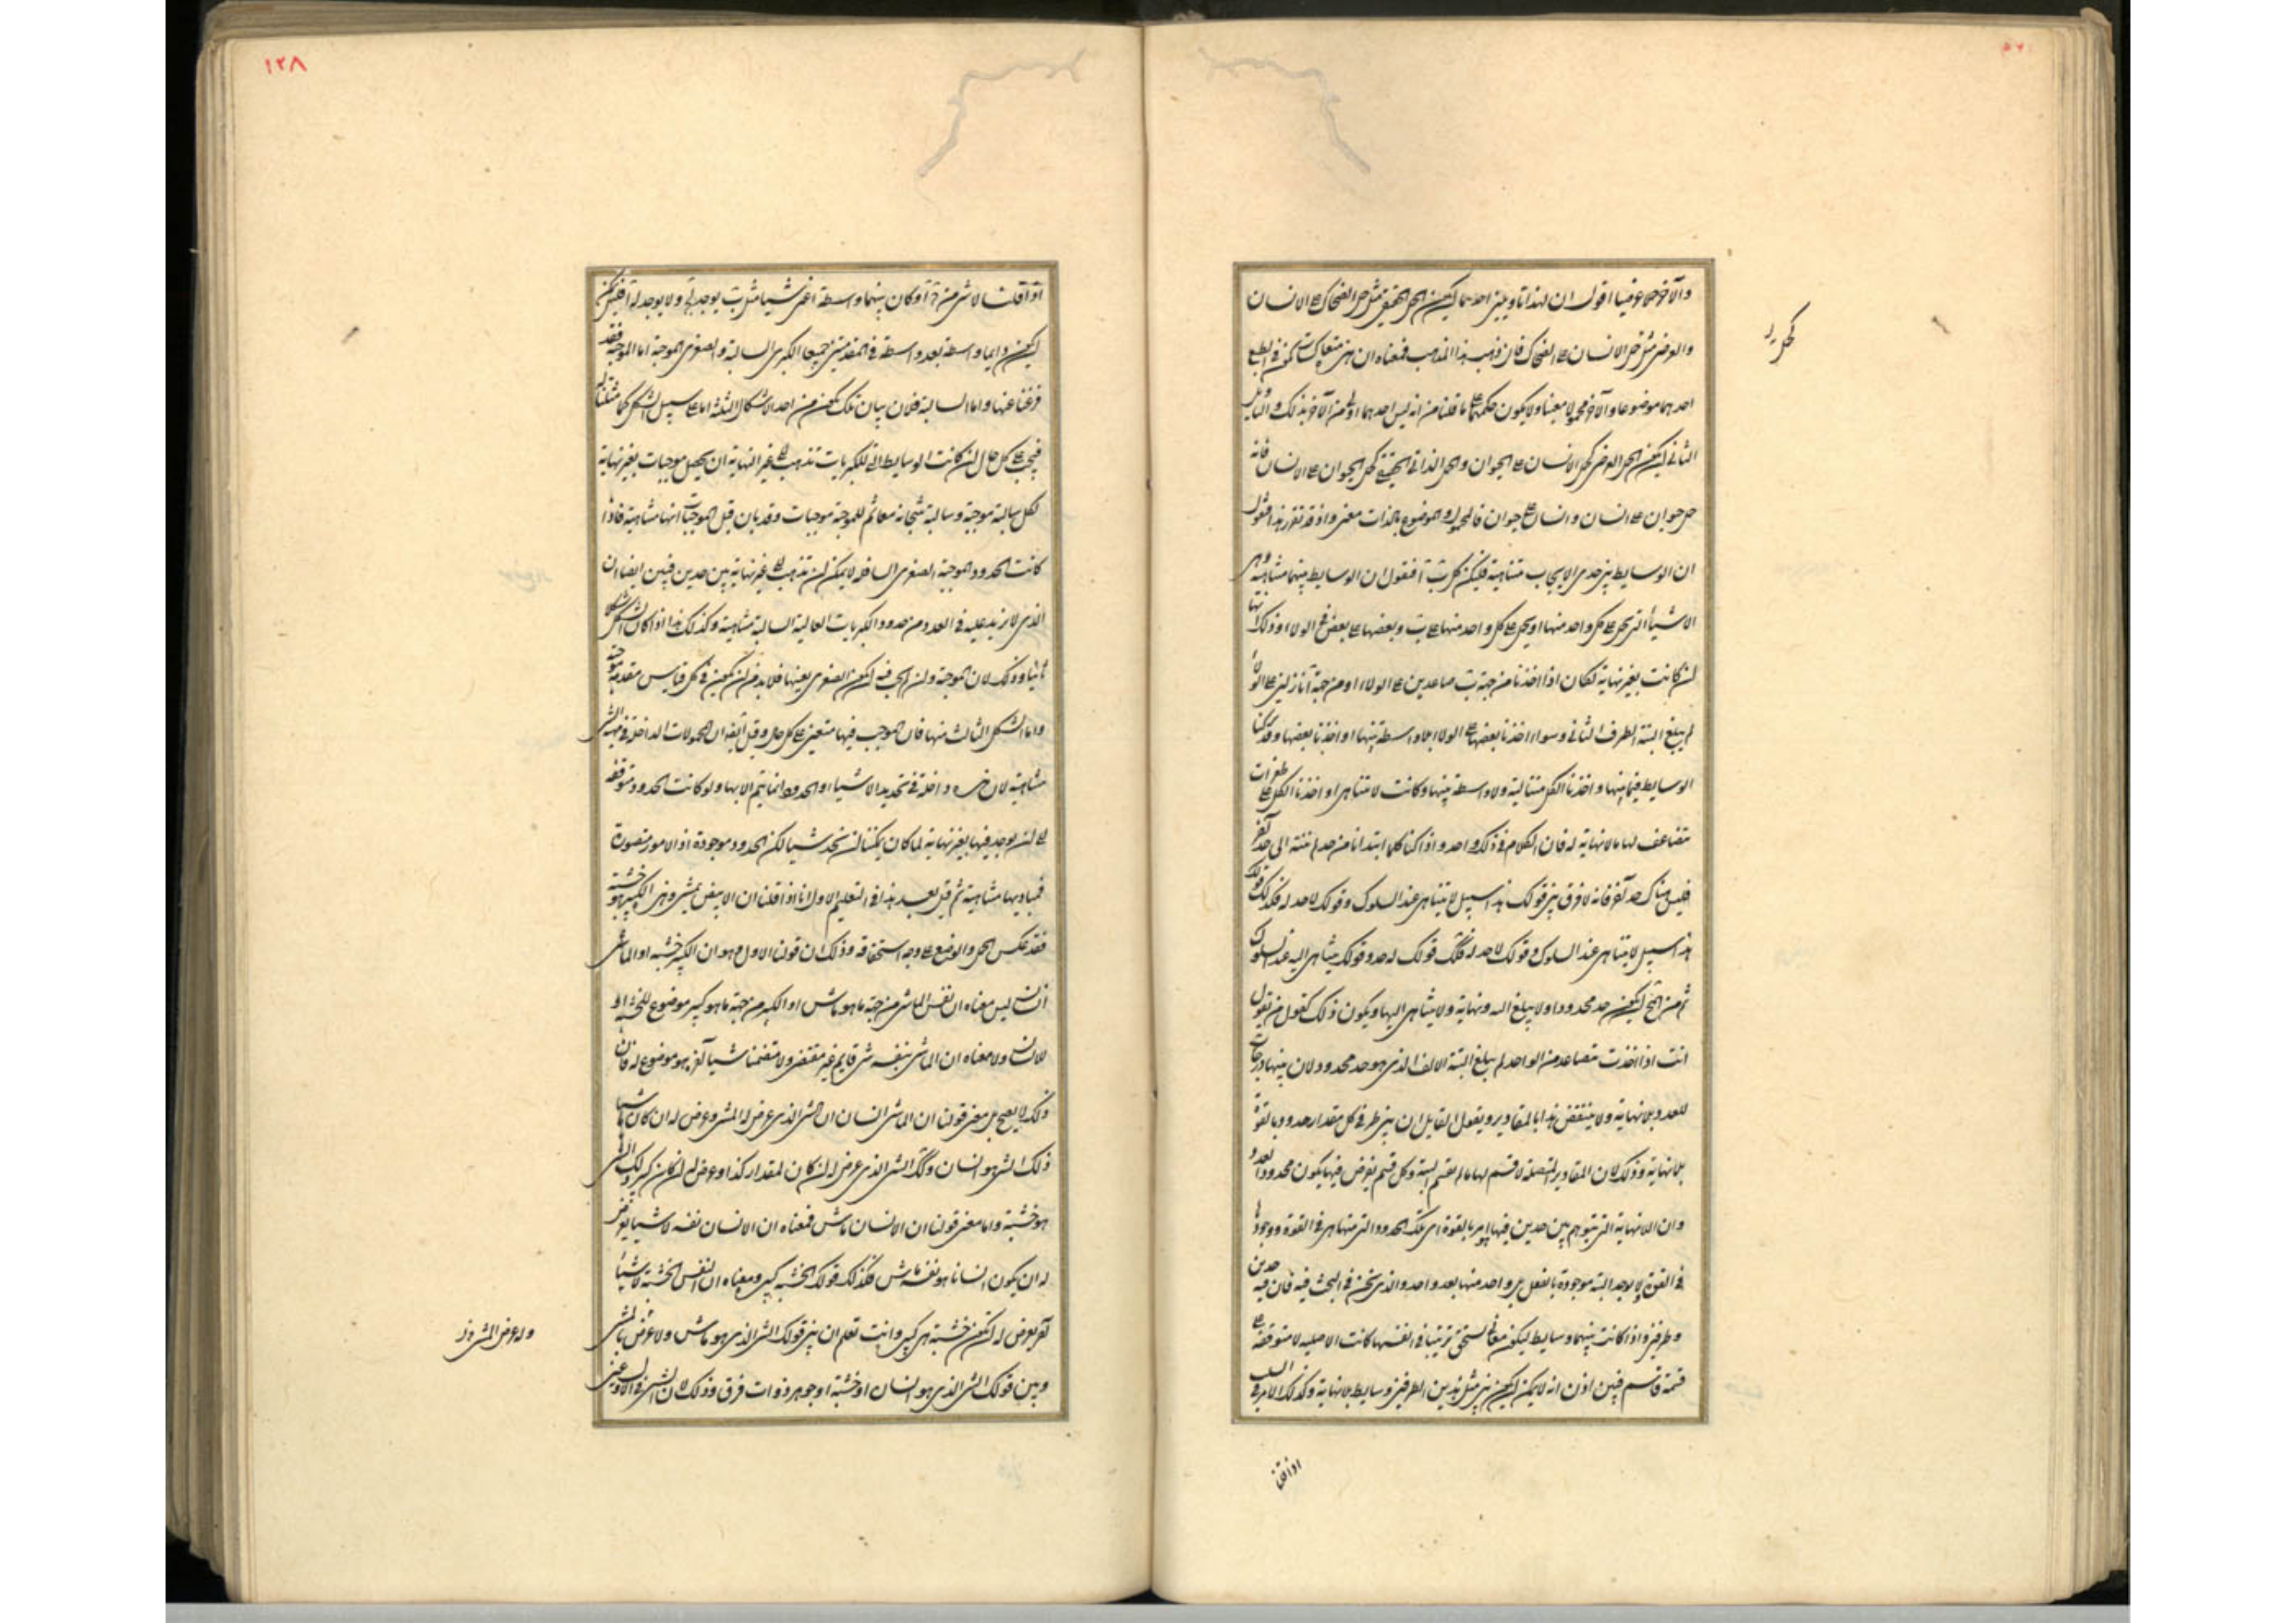 والآخر حملا عرضيا اقول ان لهذا تاويلين احدهما ان يكون الحمل الحقيقى مثل حمل الضحاك على الانسان
والعرضى مثل حمل الانسان على الضحاك فان ذهب هذا المذهب فمعناه ان هنا متعاكسات يكون فى الطبع
احدهما موضوعا والآخر محمولا معينا ولا يكون حكمهما على ما قلنا من انه ليس احدهما اولى من الآخر بذلك والتاويل
الثانى ان يكون الحمل العرضى كحمل الانسان على الحيوان والحمل الذاتى الحقيقى كحمل الحيوان على الانسان فانه
حمل حيوان على انسان وانسان على حيوان فالمحمول والموضوع بالذات معنى واذ قد تقرر هذا فنقول
ان الوسايط بين حدى الايجاب متناهية فليكن كل ب آ فنقول ان الوسايط بينهما متناهية وهى
الاشياء التى يحمل على كل واحد منها ا ويحمل كل واحد منها على ب وبعضها على بعض فى الولاء وذلك انها
لو كانت بغير نهاية لكان اذا اخذنا من جهة ب صاعدين على الولاء او من جهة آ نازلين على الولاء
لم يبلغ البتة الطرف الثانى وسواء اخذنا بعضها على الولاء بلا واسطة بينها او اخذنا بعضها وقد تركنا
الوسايط فيما بينها واخذنا الكل متتالية ولا واسطة بينها وكانت لا تتناهى او اخذنا الكل على طفرات
يتضاعف لها ما لا نهاية له فان الكلام فى ذلك واحد واذا كنا كلما ابتدانا من حد لم ننته الى حد آخر
فليس هناك حد آخر فانه لا فرق بين قولك هذا سبيل لا يتناهى عند السلوك وقولك لا حد له فكذلك قولك
هذا سبيل لا يتناهى عند السلوك وقولك لا حد له فكذلك قولك له حد وقولك يتناهى اليه عند السلوك
ثم من المحال ان يكون حد محدودا ولا يبلغ اليه ونهاية ولا يتناهى اليها ويكون ذلك كقول من يقول
انت اذا اخذت متصاعدا من الواحد لم يبلغ البتة الالف الذى هو حد محدود لان بينها درجات
للعدد بلا نهاية ولا ينتقض هذا بالمقادير ويقول القايل ان بين طرفى كل مقدار حدودا بالقوة
بلا نهاية وذلك لان المقادير المتصلة لا قسم لها ما لم تقسم البتة وكل قسم يفرض فيها يكون محدود العدد
وان اللانهاية التى يتوهم بين حدين فيها هو امر بالقوة اى تلك الحدود التى منها هى فى القوة ووجودها
فى القوة لا يوجد البتة موجودة بالفعل بل واحد منها بعد واحد والذى نحن فى البحث فيه فان فيه حدين
وطرفين واذا كانت بينهما وسايط ليكون معانى تستحق ترتيبا فى انفسها كانت الا صليه لا متوقفة على
قسمة قاسم فبين اذن انه لا يمكن ان يكون بين مثل هذين الطرفين وسايط بلا نهاية وكذلك الامر فى السلب
اذا قلنا
١٢٨
اذا قلنا لا شى من ج آ وكان بينهما واسطة اعنى شيئا مثل ب يوجد لج ولا يوجد له آ فليس يمكن
ان يكون دايما واسطة بعد واسطة فى المقدمتين جميعا الكبرى السالبة والصغرى الموجبة اما الموجبة فقد
فرغنا عنها واما السالبة فلان بيان تلك يكون من احد الاشكال الثلثة اما على سبيل الشكل كما مثلنا له
فيجب على كل حال ان كانت الوسايط التى للكبريات تذهب الى غير النهاية ان يحصل موجبات بغير نهاية
لكل سالبة موجبة وسالبة تنتجانه معا ثم للموجبة موجبات وقد بان قبل الموجبات انها متناهية فاذا
كانت الحدود الموجبة الصغرى السافلة لا يمكن ان تذهب الى غير نهاية بين حدين فبين ايضا ان
الذى لا نزيد عليه فى العدد من حدود الكبريات العالية السالبة متناهية وكذلك هذا اذا كان الشكل شكلا
ثانيا وذلك لان الموجبة وان لم يجب فيه ان يكون الصغرى بعينها فلا بد من ان يكون فى كل قياس مقدمة موجبة
واما الشكل الثالث منها فان الموجب فيها متعين على كل حال وقيل ايضا ان المحمولات الداخلة فى مهية الشى
متناهية لان هذه داخلة فى تحديد الاشياء والحدود انما يتم الا بها ولو كانت الحدود متوقفة
على ان يوجد فيها بغير نهاية لما كان يمكننا ان نحد شيئا لكن الحدود موجودة اذ الامور متصورة
فمباديها متناهية ثم قيل بعد هذا فى التعليم الاول انا اذا قلنا ان الابيض يمشى وهذا الكبير هو خشبة
فقد عكس الحمل والوضع على وجه استحقاقه وذلك ان قولنا الاول وهو ان الكبير خشبة او الماشى
انسان ليس معناه ان نفس الماشى من جهة ما هو ماش او الكبير من جهة ما هو كبير موضوع للخشبة او
للانسان ولا معناه ان الماشى بنفسه شى قايم غير مقتض ولا متضمنا شيئا آخر هو موضوع له فان
ذلك لا يصح بل معنى قولنا ان الماشى انسان ان الشى الذى عرض له المشى وعرض له ان كان ماشيا
ذلك الشى هو انسان وكذلك الشى الذى عرض له ان كان لمقدار كذا وعرض له ان كان كبيرا ذلك الشى
هو خشبة واما معنى قولنا ان الانسان ماش فمعناه ان الانسان نفسه لا شيئا يعرض
له ان يكون انسانا هو نفسه ماش فكذلك قولك الخشبة كبير ومعناه ان نفس الخشبة لا شيئا
آخر يعرض له ان يكون خشبة هى كبير وانت تعلم ان بين قولك الشى الذى هو ماش ولا عرض المشى
وبين قولك الشى الذى هو انسان او خشبة او جوهر وذات فرق وذلك لان الشى فى الاول عنى